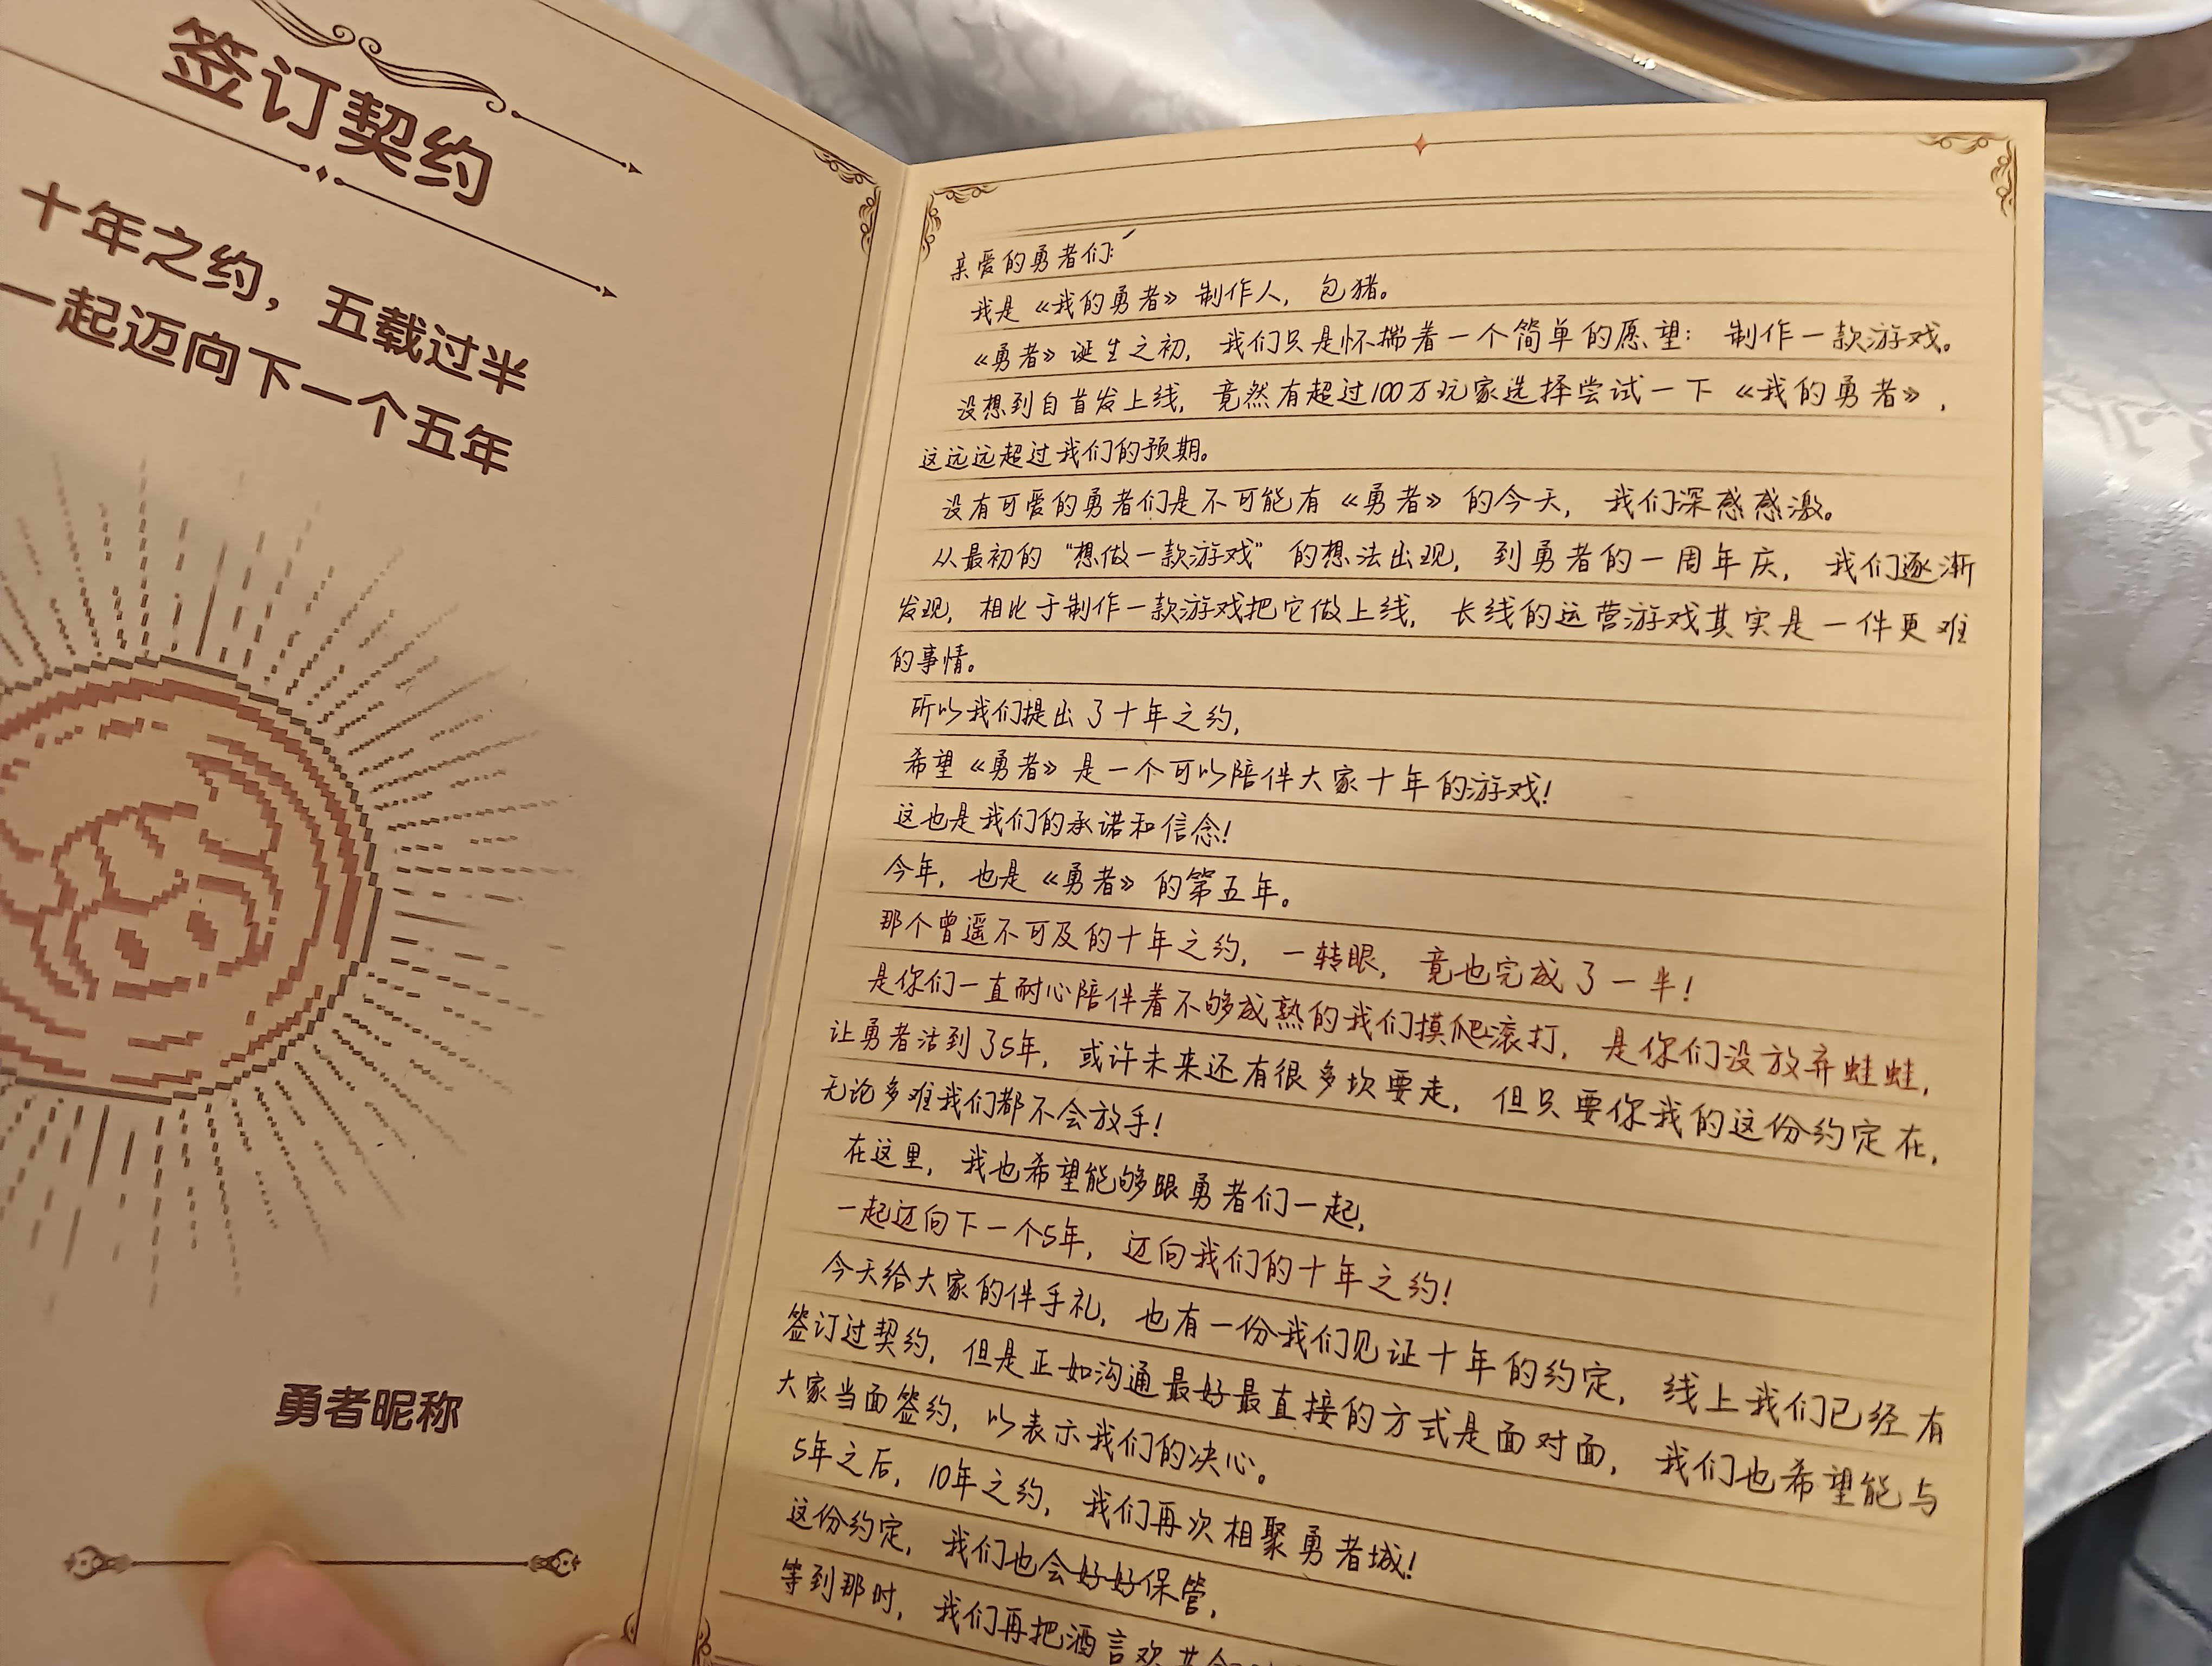 签订契约
十年之约，五载过半
一起迈向下一个五年
勇者昵称
亲爱的勇者们：
我是《我的勇者》制作人，包猪。
《勇者》诞生之初，我们只是怀揣着一个简单的愿望：制作一款游戏。
没想到自首发上线，竟然有超过100万玩家选择尝试一下《我的勇者》，
这远远超过我们的预期。
没有可爱的勇者们是不可能有《勇者》的今天，我们深感感激。
从最初的“想做一款游戏”的想法出现，到勇者的一周年庆，我们逐渐
发现，相比于制作一款游戏把它做上线，长线的运营游戏其实是一件更难
的事情。
所以我们提出了十年之约，
希望《勇者》是一个可以陪伴大家十年的游戏！
这也是我们的承诺和信念！
今年，也是《勇者》的第五年。
那个曾遥不可及的十年之约，一转眼，竟也完成了一半！
是你们一直耐心陪伴着不够成熟的我们摸爬滚打，是你们没放弃蛙蛙，
让勇者活到了5年，或许未来还有很多坎要走，但只要你我的这份约定在，
无论多难我们都不会放手！
在这里，我也希望能够跟勇者们一起，
一起迈向下一个5年，迈向我们的十年之约！
今天给大家的伴手礼，也有一份我们见证十年的约定，线上我们已经有
签订过契约，但是正如沟通最好最直接的方式是面对面，我们也希望能与
大家当面签约，以表示我们的决心。
5年之后，10年之约，我们再次相聚勇者城！
这份约定，我们也会好好保管，
等到那时，我们再把酒言欢